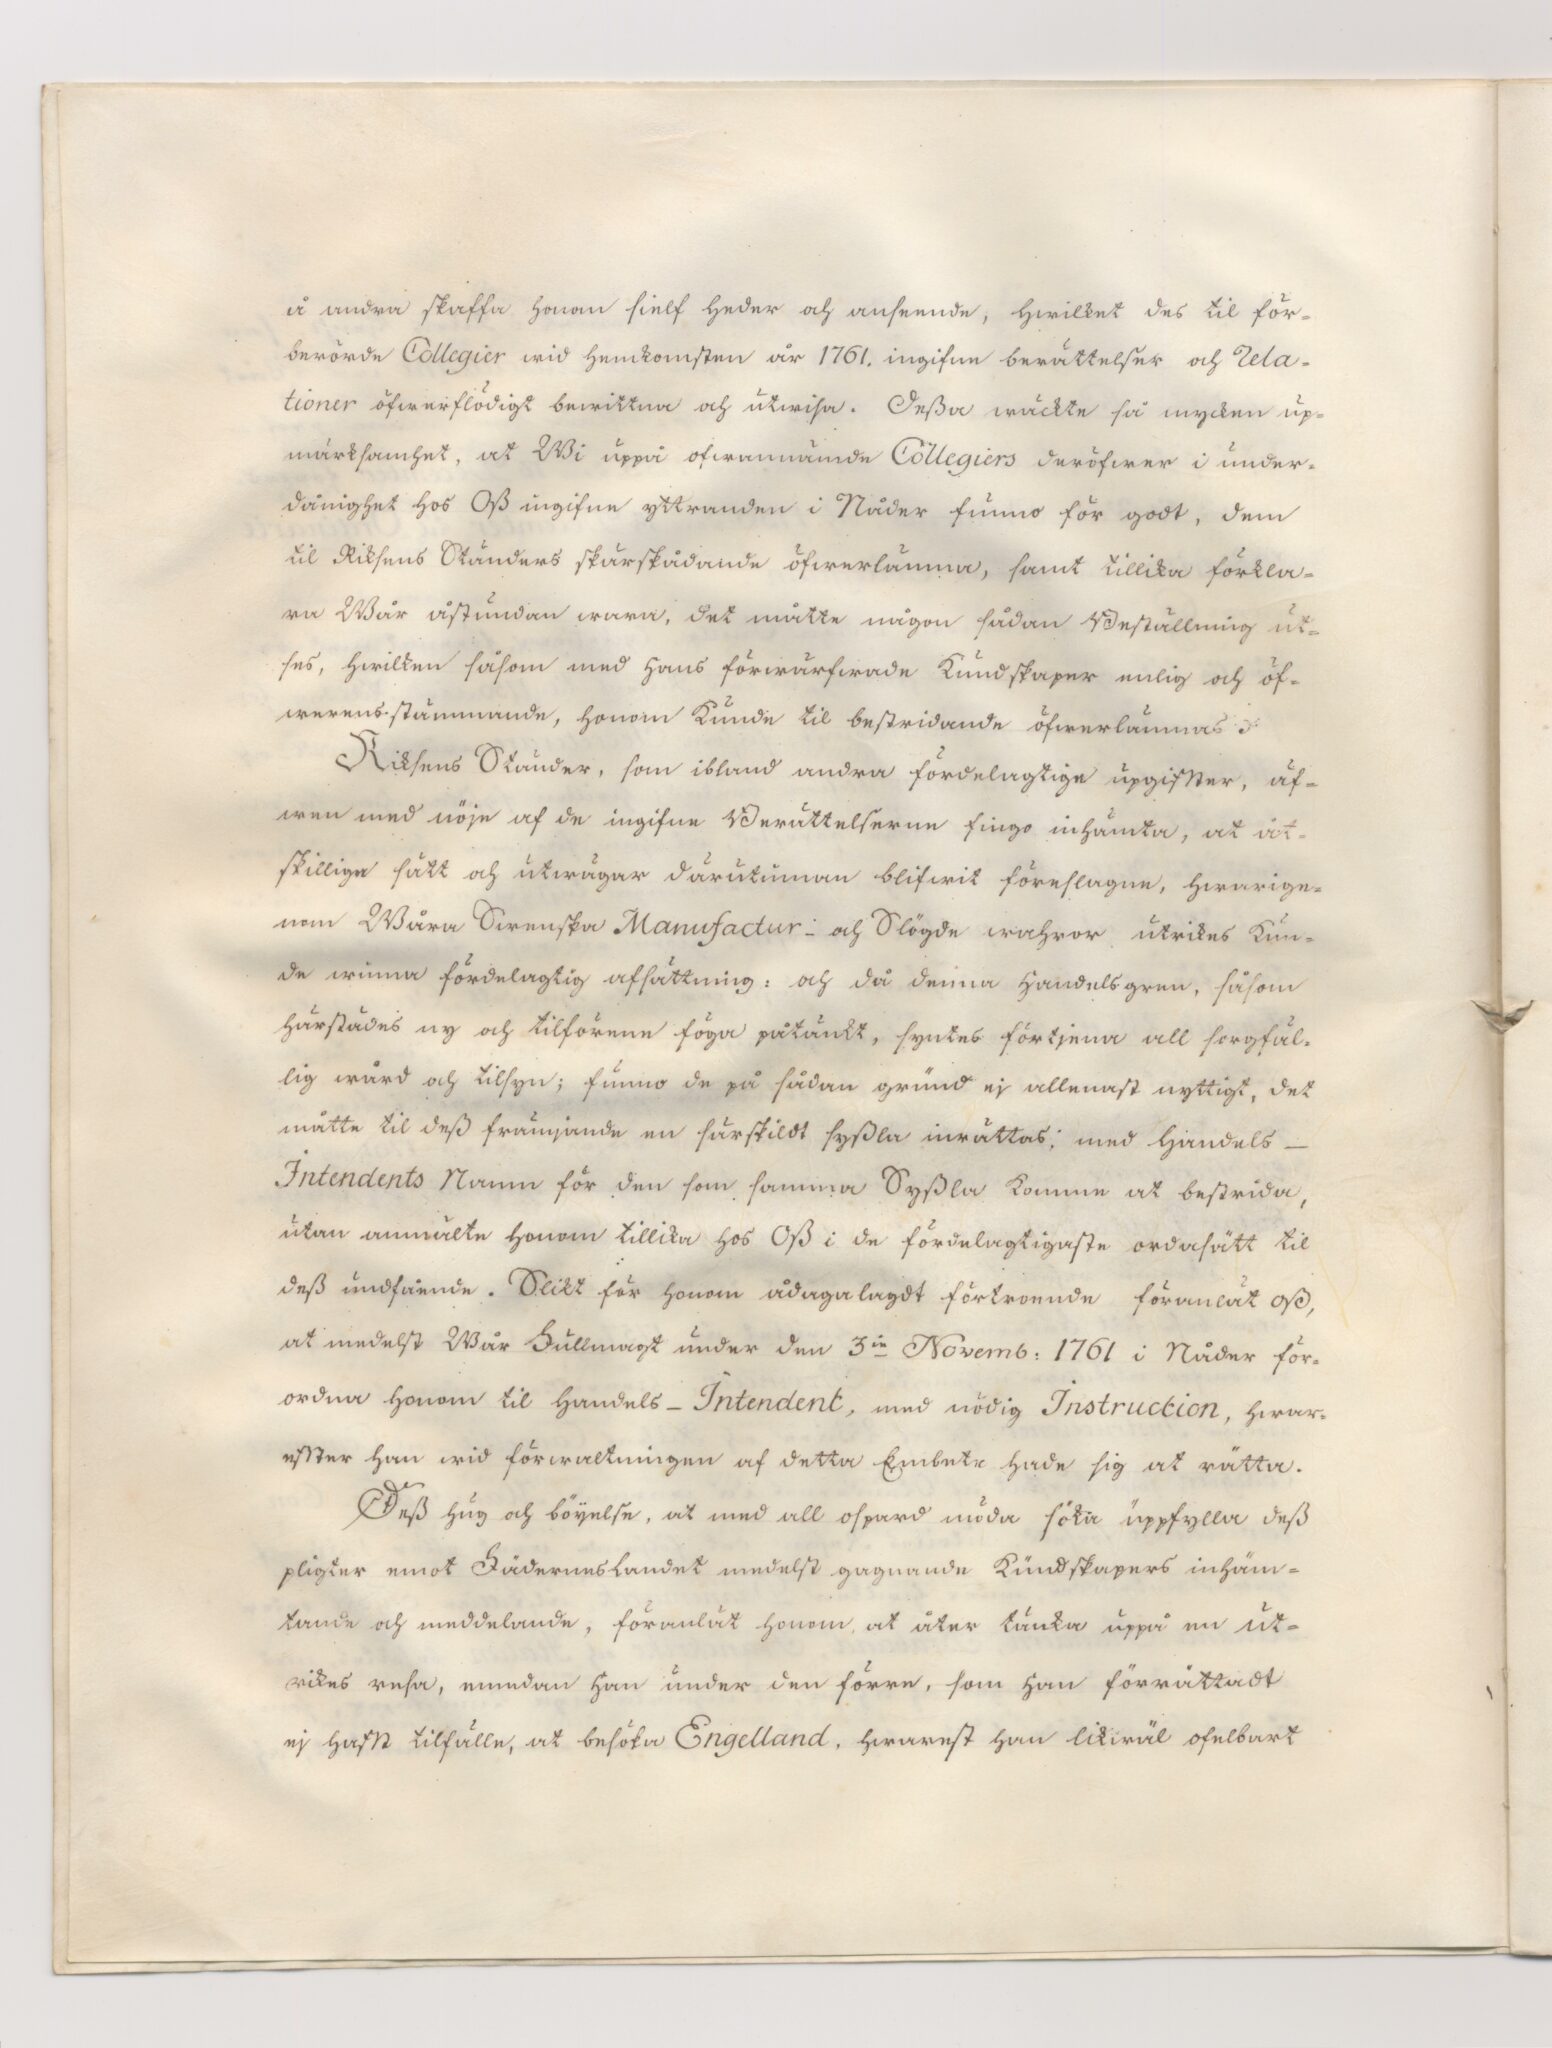 å andra skaffa honom sielf heder och anseende, hwilket des til för-
berörde Collegier wid hemkomsten år 1761. ingifne berättelser och Rela-
tioner öfwerflödigt bewittna och utwisa. Deßa wäckte så mycken up-
märksamhet, at Wi uppå ofwannämde Collegiers deröfwer i under-
dånighet hos Oß ingifne yttranden i Nåder funno för godt, dem
til Riksens Ständers skärskådande öfwerlämna, samt tillika förkla-
ra Wår åstundan wara, det måtte någon sådan Beställning ut-
ses, hwilken såsom med hans förwärfwade Kundskaper enlig och öf-
werens-stämmande, honom Kunde til bestridande öfwerlämnas.
Riksens Ständer, som ibland andra fördelagtige upgifter, äf-
wen med nöje af de ingifne Berättelserne fingo inhämta, at åt-
skillige sätt och utwägar därutinnan blifwit föreslagne, hwarige-
nom Wåra Swenska Manufactur- och Slögde wahror utrikes Kun-
de winna fördelagtig afsättning: och då denna Handelsgren, såsom
härstädes ny och tilförene föga påtänkt, syntes förtjena all sorgfäl-
lig wård och tilsyn; funno de på sådan grund ej allenast nyttigt, det
måtte til deß främjande en särskildt syßla inrättas, med Handels-
Intendents Namn för den som samma Syßla Komme at bestrida,
utan anmälte honom tillika hos Oß i de fördelagtigaste ordasätt til
deß undfående. Slikt för honom ådagalagdt förtroende föranlät Oß,
at medelst Wår Fullmagt under den 3ie Novemb: 1761 i Nåder för-
ordna honom til Handels-Intendent, med nödig Instruction, hwar-
efter han wid förwaltningen af detta Embete hade sig at rätta.
Deß hug och böyelse, at med all ospard möda söka uppfylla deß
pligter emot Fäderneslandet medelst gagnande Kundskapers inhäm-
tande och meddelande, föranlät honom, at åter tänka uppå en ut-
rikes resa, emedan han under den förre, som han förrättadt
ej haft tilfälle, at besöka Engelland, hwarest han likwäl ofelbart